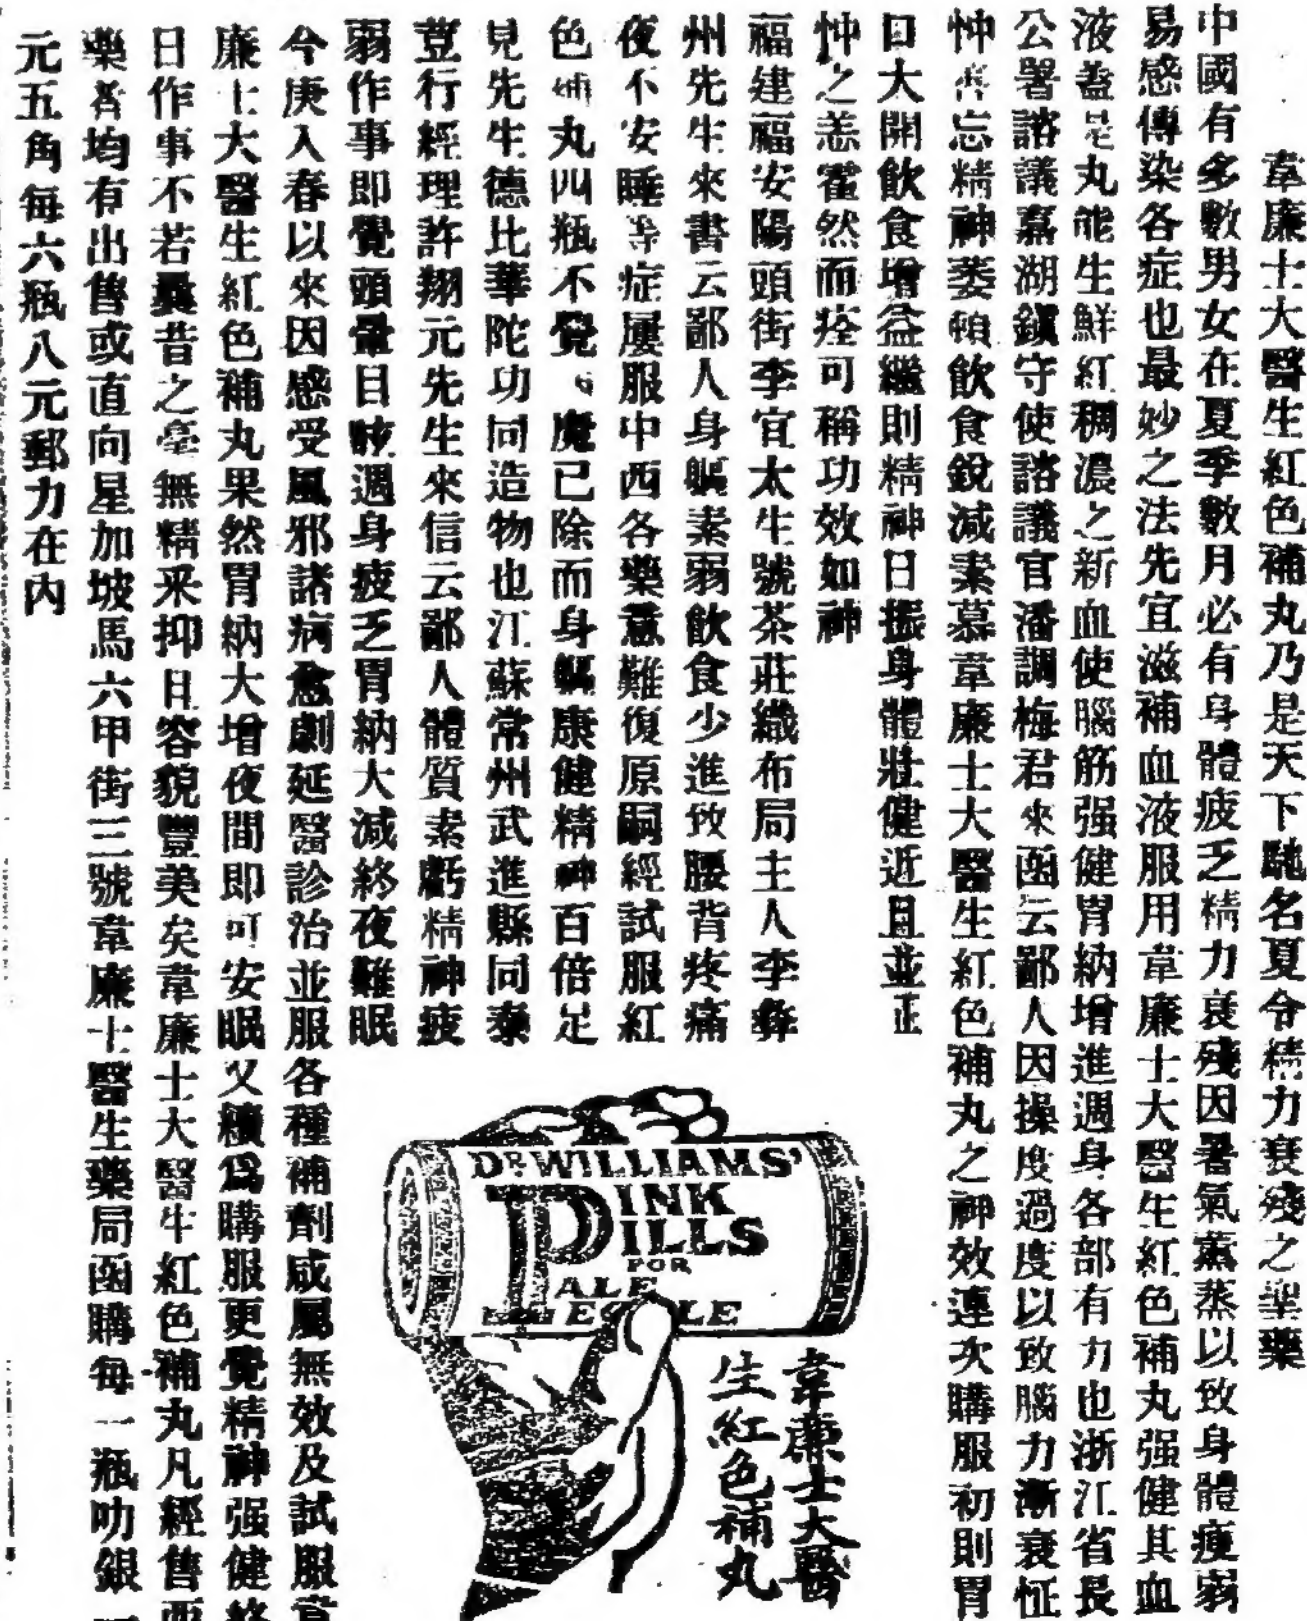 韋廉士大醫生紅色補丸乃是天下馳名夏令精力衰殘之聖藥
中國有多數男女在夏季數月必有身體疲乏精力衰殘因暑氣薰蒸以致身體瘦弱
易感傳染各症也最妙之法先宜滋補血液服用韋廉士大醫生紅色補丸强健其血
液蓋是丸能生鮮紅稠濃之新血使腦筋强健胃納增進週身各部有力也浙江省長
公署諮議嘉湖鎭守使諮議官潘調梅君來函云鄙人因操度過度以致腦力漸衰怔
忡善忘精神萎頓飲食銳減素慕韋廉士大醫生紅色補丸之神效連次購服初則胃
口大開飲食增益繼則精神日振身體壯健近且並正
忡之恙霍然而痊可稱功效如神
福建福安陽頭街李宜太生號茶莊織布局主人李彝
州先生來書云鄙人身軀素弱飲食少進致腰背疼痛
夜不安睡等症屢服中西各藥意難復原嗣經試服紅
色補丸四瓶不覺魔已除而身軀康健精神百倍足
見先生德比華陀功同造物也江蘇常州武進縣同泰
荳行經理許翔元先生來信云鄙人體質素虧精神疲
弱作事即覺頭暈目眩週身疲乏胃納大減終夜難眠
今庚入春以來因感受風邪諸病愈劇延醫診治並服各種補劑咸屬無效及試服韋
廉士大醫生紅色補丸果然胃納大增夜間即可安眠又續爲購服更覺精神强健終
日作事不若曩昔之毫無精采抑且容貌豐美矣韋廉士大醫生紅色補丸凡經售西
藥者均有出售或直向星加坡馬六甲街三號韋廉士醫生藥局函購每一瓶叻銀
元五角每六瓶八元郵力在內
DR WILLIAMS'
PINK
PILLS
FOR
PALE
PEOPLE
韋廉士大醫
生紅色補丸